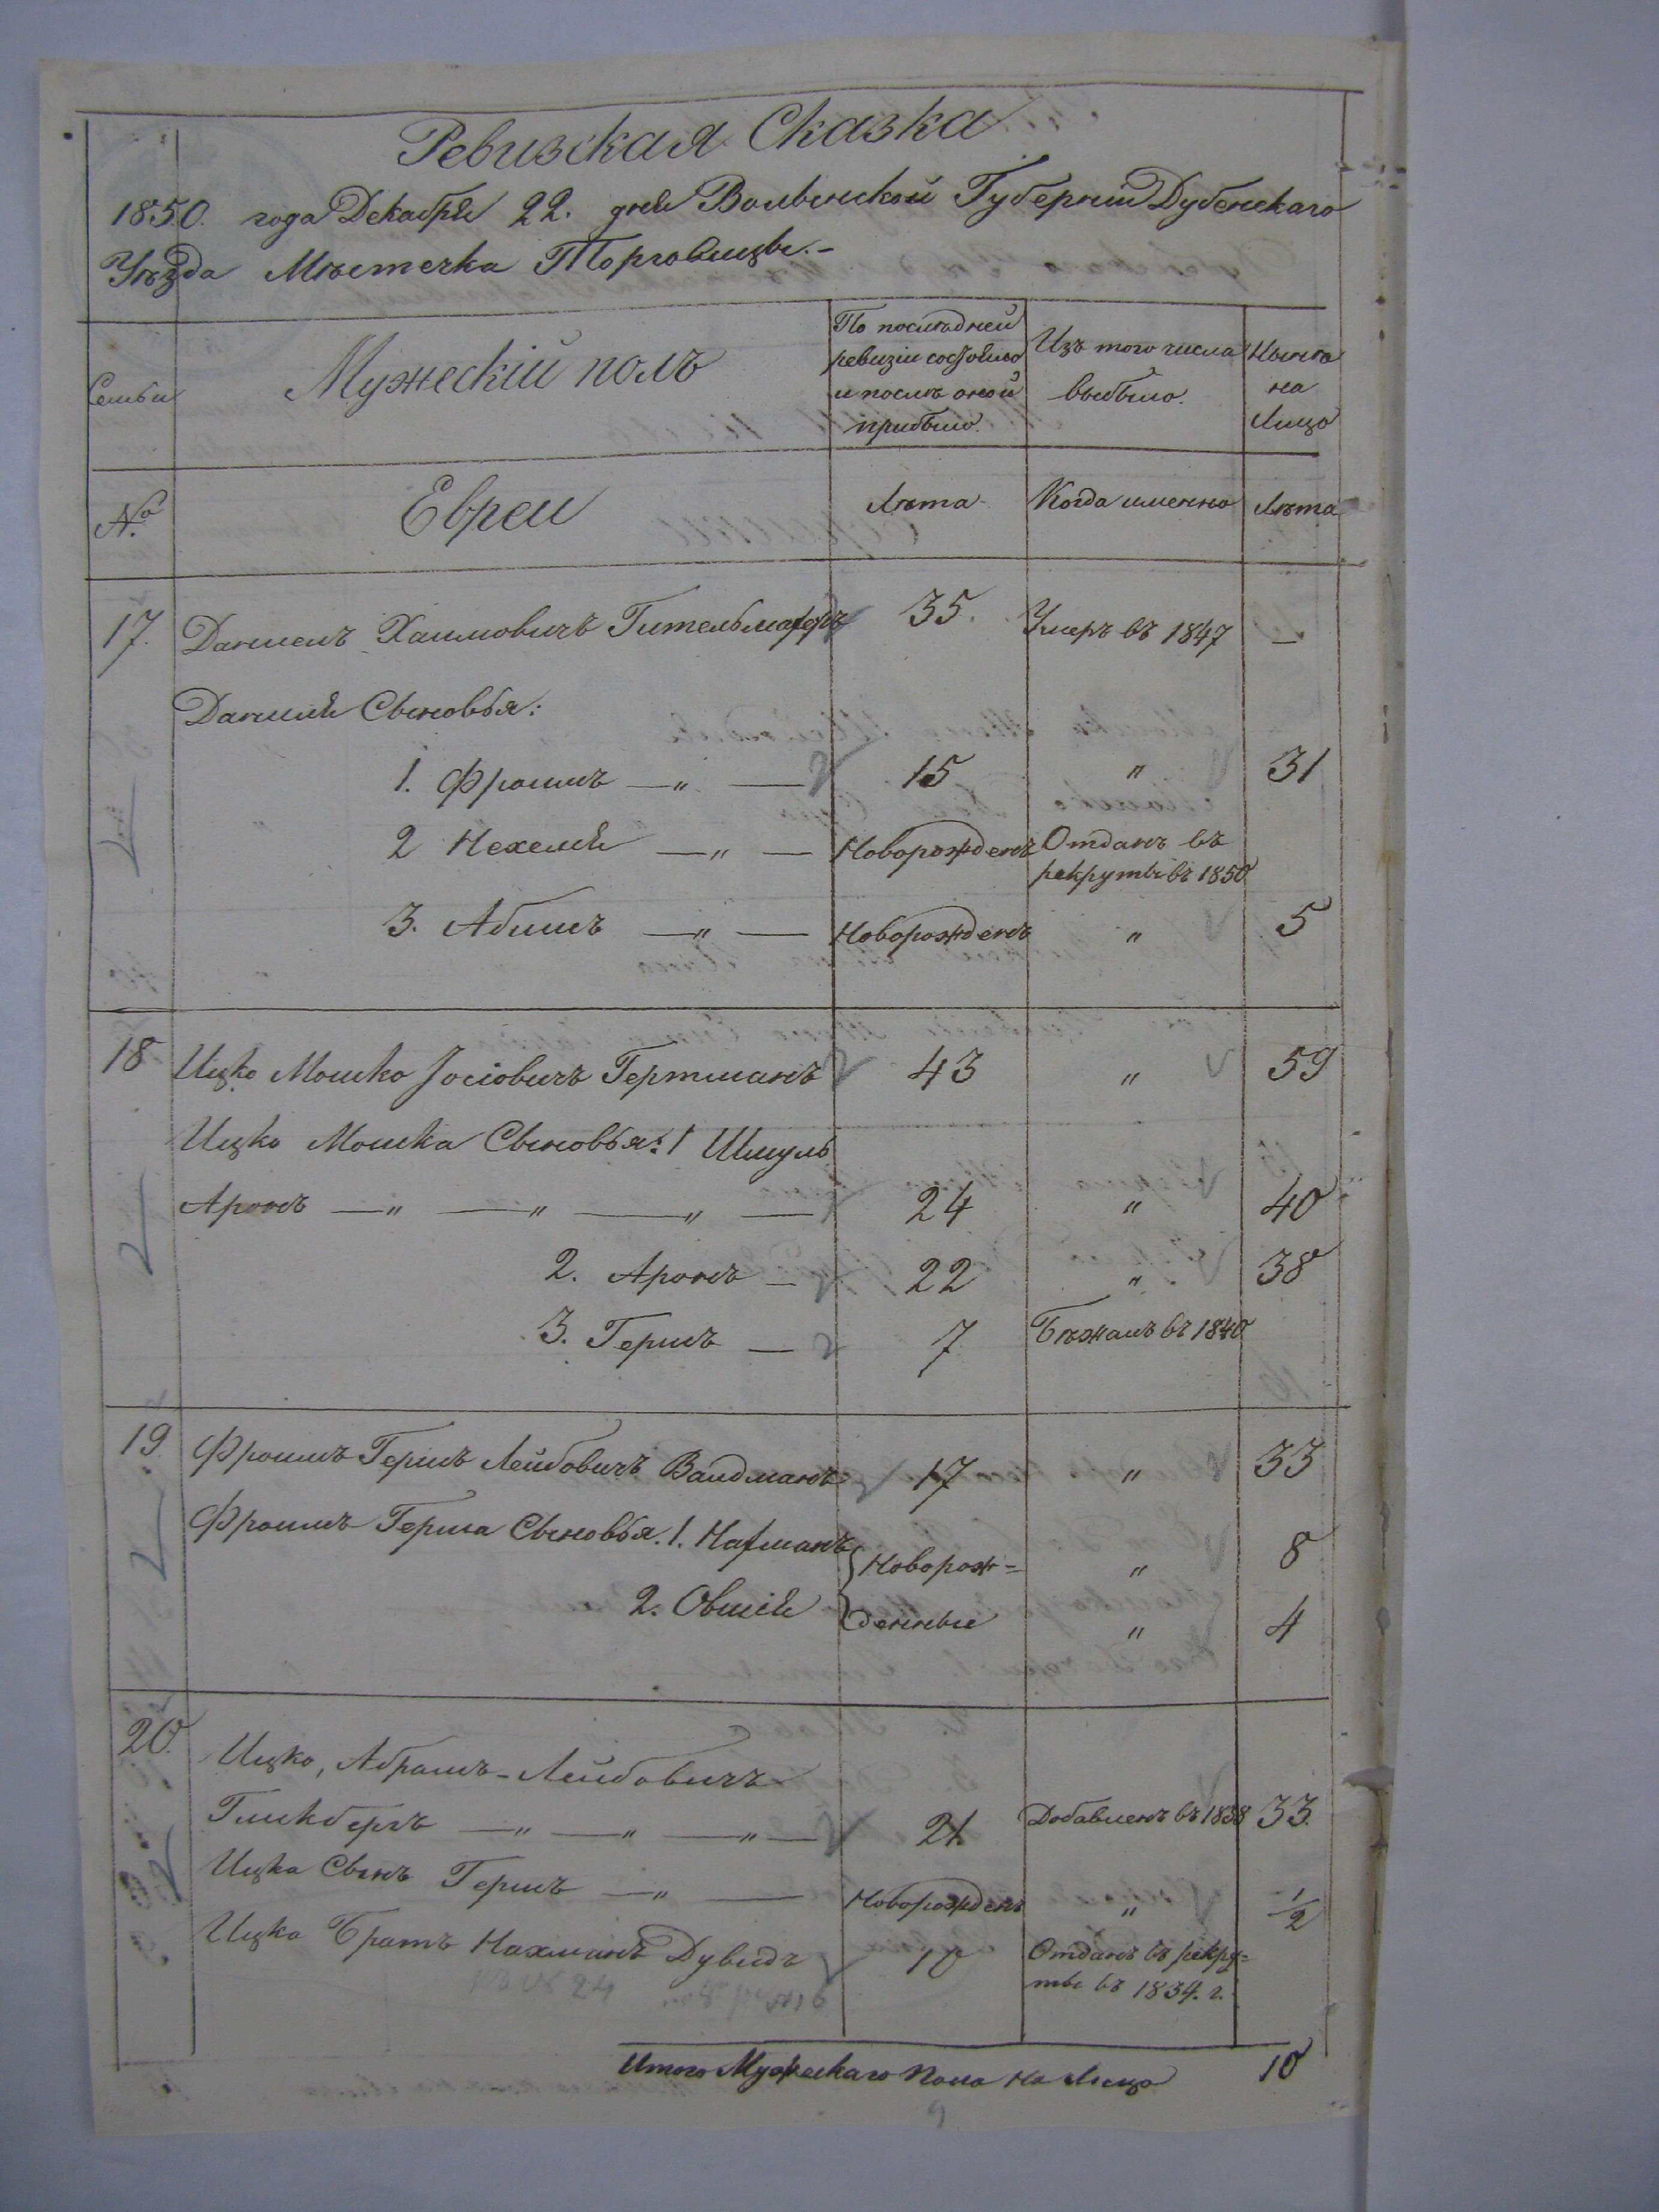 Ревизская Сказка
1850. года Декабря 22. дня Волынской Губерніи Дубенскаго
Уѣзда Мѣстечка Торговицы.-
Семьи
Мужескій полъ
По послѣдней
ревизіи состояло
и послѣ оной
прибыло.
Изъ того числа
выбыло.
Нынѣ
на
Лицо
№
Евреи
Лѣта
Когда именно
Лѣта
17. Даниель Хаимовичъ 35. Умеръ въ 1847 —
Даниеля Сыновья:
1. Фроимъ —„— 15 „ 31
2 Нехемя —„— Новорожденъ Отданъ въ
рекруты въ 1850
3. Абишъ —„— Новорожденъ „ 5
18 Ицко Мошко Іосіовичъ Гертманъ 43 „ 59
Ицко Мошка Сыновья: 1 Шмуль
Аронъ —„—„—„— 24 „ 40
2. Аронъ — 22 „ 38
3. Гершъ — 7 Бѣжалъ въ 1840
19 Фроимъ Гершъ Лейбовичъ Валдманъ 17 „ 33
Фроимъ Герша Сыновья. 1. Нахманъ Новорож= „ 8
2. Овшія денные „ 4
20. Ицко, Абрамъ-Лейбовичъ
Гликбергъ —„—„—„— 21 Добавленъ въ 1838 33.
Ицка Сынъ Гершъ —„— Новорожденъ „ 1/2
Ицка Братъ Нахманъ Дувидъ 10 Отданъ въ рекру=
ты въ 1834. г.
Итого Мужескаго Пола на Лицо 10